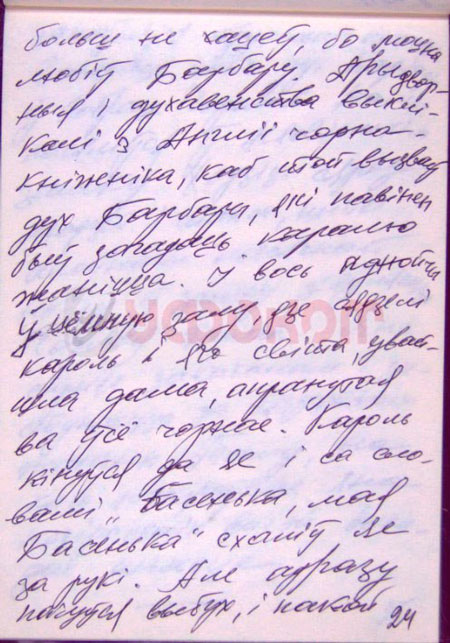 больш не хацеў, бо моцна
любіў Барбару. Прыдвор-
ныя і духавенства выклі-
калі з Англіі чорна-
кніжніка, каб той вызваў
дух Барбары, які павінен
быў загадаць каралю
жаніцца. І вось аднойчы
ў цёмную залу, дзе сядзелі
кароль і яго світа, увай-
шла дама, апранутая
ва ўсё чорнае. Кароль
кінуўся да яе і са сло-
вамі „Басенька, мая
Басенька“ схапіў яе
за рукі. Але адразу
пачуўся выбух, і пакой
24